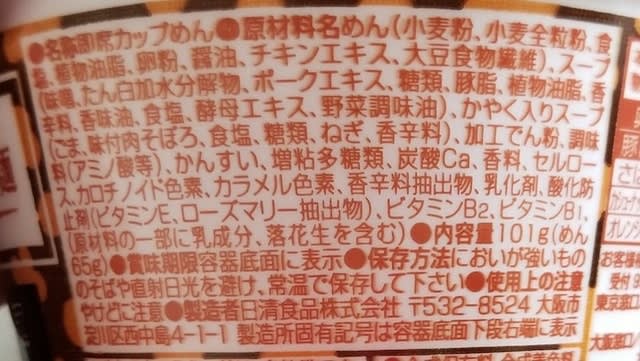 ●名称即席カップめん●原材料名めん(小麦粉、小麦全粒粉、食
塩、植物油脂、卵粉、醤油、チキンエキス、大豆食物繊維)、スープ
(味噌、たん白加水分解物、ポークエキス、糖類、豚脂、植物油脂、香
辛料、香味油、食塩、酵母エキス、野菜調味油)、かやく入りスープ
(ごま、味付肉そぼろ、食塩、糖類、ねぎ、香辛料)、加工でん粉、調味
料(アミノ酸等)、かんすい、増粘多糖類、炭酸Ca、香料、セルロー
ス、カロチノイド色素、カラメル色素、香辛料抽出物、乳化剤、酸化防
止剤(ビタミンE、ローズマリー抽出物)、ビタミンB2、ビタミンB1、
(原材料の一部に乳成分、落花生を含む)●内容量101g(めん
65g)●賞味期限容器底面に表示●保存方法においが強いもの
のそばや直射日光を避け、常温で保存して下さい●使用上の注意
やけどに注意●製造者日清食品株式会社 〒532-8524 大阪市
淀川区西中島4-1-1 製造所固有記号は容器底面下段右端に表示
豚
さば
オレンジ
お客様
受付
東京
大阪